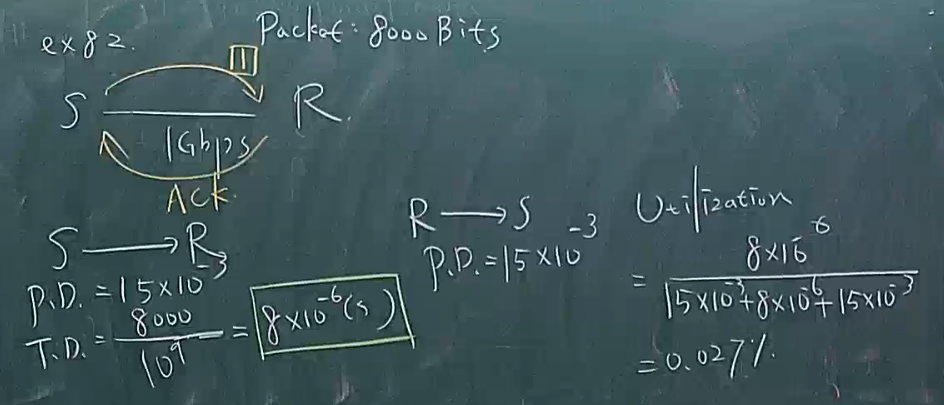 ex82.
Packet: 8000 Bits
1
S
R.
1Gbps
ACK
S → R
P.D. = 15×10⁻³
T.D. = 8000/10⁹ = 8×10⁻⁶(s)
R → S
P.D. = 15×10⁻³
Utilization
= 8×10⁻⁶ / 15×10⁻³+8×10⁻⁶+15×10⁻³
= 0.027%